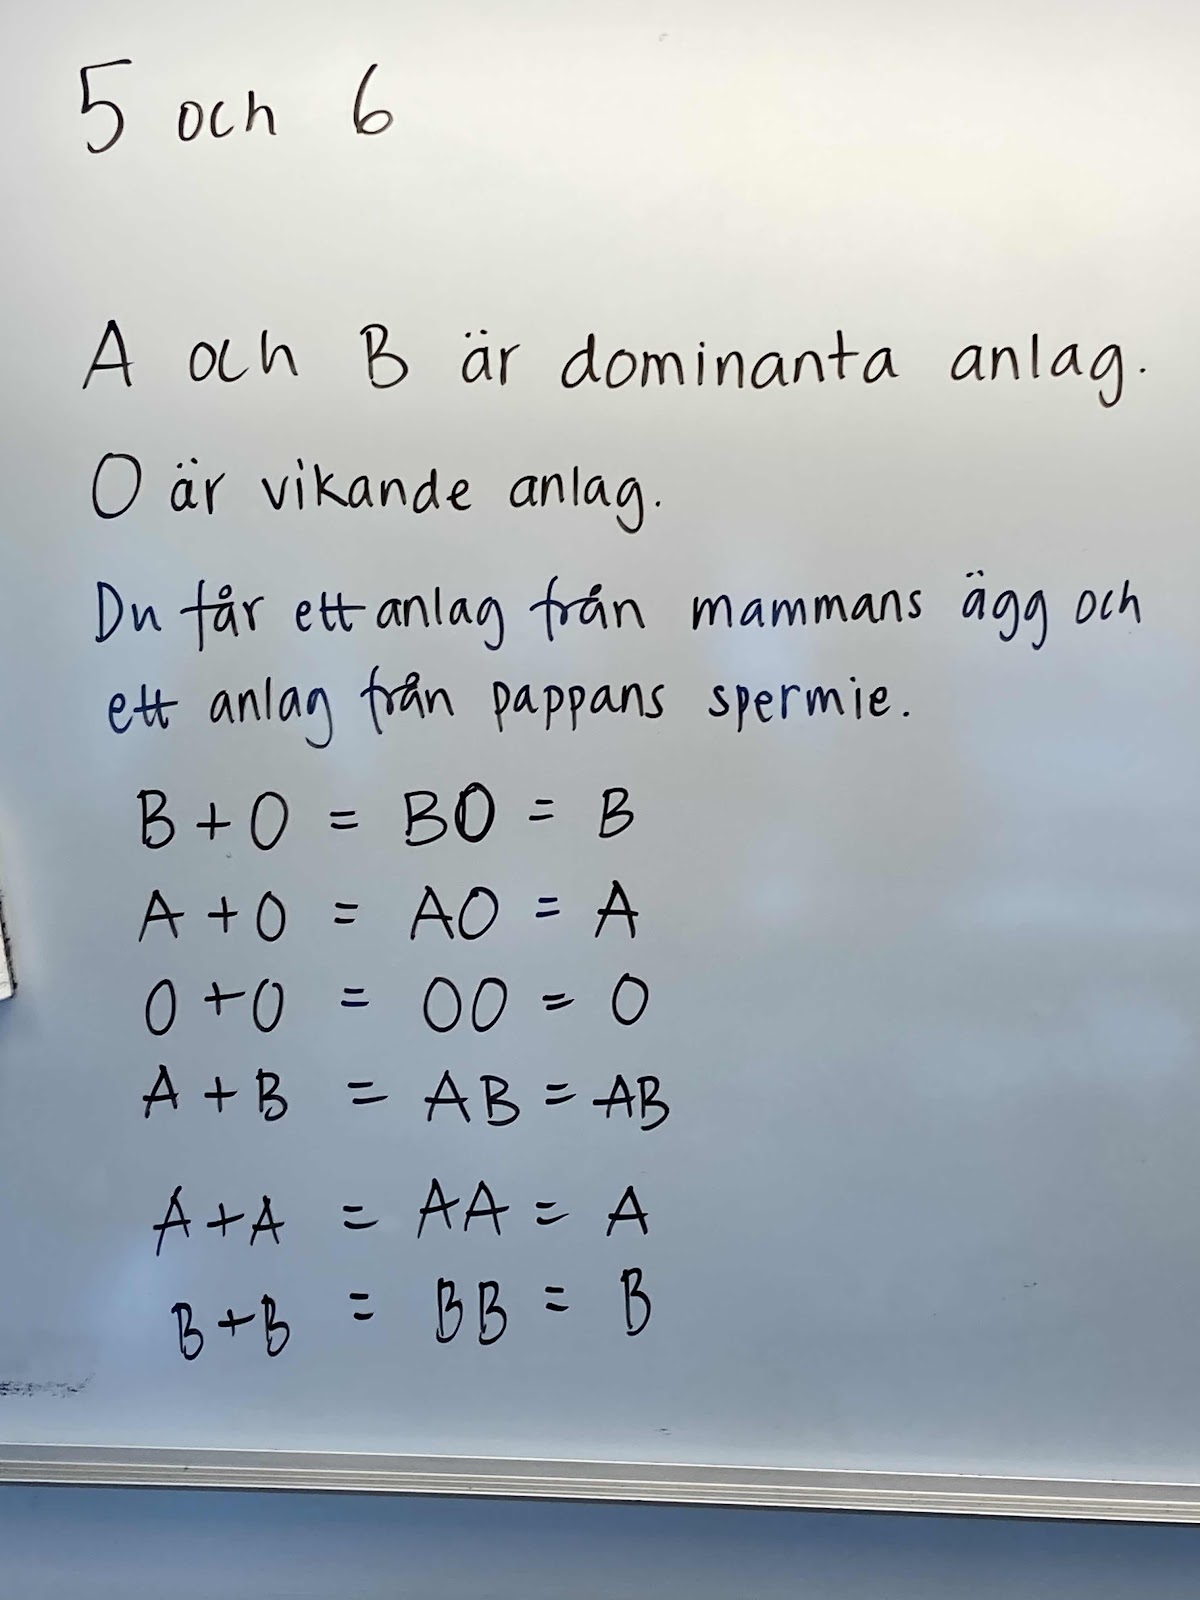 5 och 6
A och B är dominanta anlag.
O är vikande anlag.
Du får ett anlag från mammans ägg och
ett anlag från pappans spermie.
B + O = BO = B
A + O = AO = A
O + O = OO = O
A + B = AB = AB
A + A = AA = A
B + B = BB = B